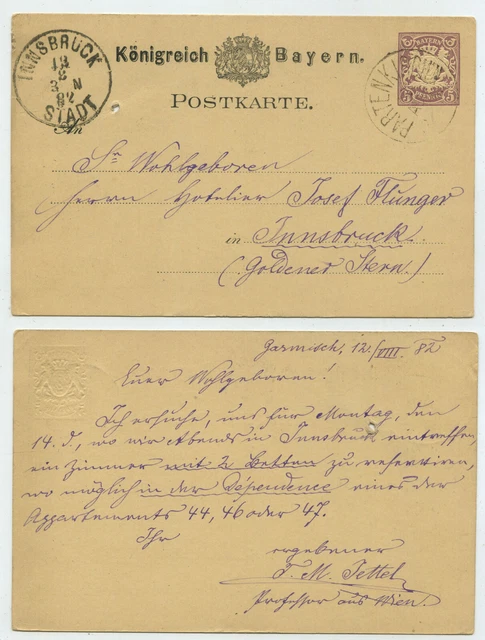 Königreich Bayern.
POSTKARTE.
BAYERN
5 5
PFENNIG
INNSBRUCK
13
8
3 N
82
STADT
PARTENKIRCHEN
An
Sr Wohlgeboren
Herrn Hotelier Josef Flunger
in Innsbruck.
(Goldener Stern.)
Garmisch, 12./VIII. 82
Euer Wohlgeboren!
Ich ersuche, uns für Montag, den
14. d, wo wir Abends in Innsbruck eintreffen,
ein Zimmer mit 2 Betten zu reserviren,
wo möglich in der Dépendence eines der
Appartements 44, 46 oder 47.
Ihr
ergebener
T. M. Tettel
Professor aus Wien.